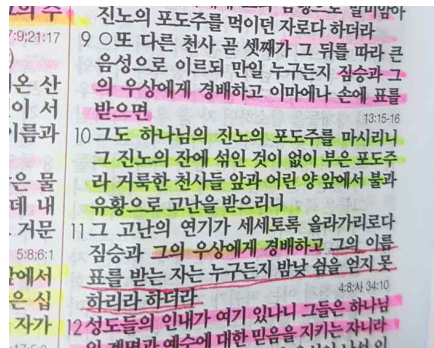 의 주
7:9;21:17
온 산
이 서
이름과
은 물
데 내
거문
5:8;6:1
앞에서
은 십
자가
진노의 포도주를 먹이던 자로다 하더라
9 ○또 다른 천사 곧 셋째가 그 뒤를 따라 큰
음성으로 이르되 만일 누구든지 짐승과 그
의 우상에게 경배하고 이마에나 손에 표를
받으면
13:15-16
10 그도 하나님의 진노의 포도주를 마시리니
그 진노의 잔에 섞인 것이 없이 부은 포도주
라 거룩한 천사들 앞과 어린 양 앞에서 불과
유황으로 고난을 받으리니
11 그 고난의 연기가 세세토록 올라가리로다
짐승과 그의 우상에게 경배하고 그의 이름
표를 받는 자는 누구든지 밤낮 쉼을 얻지 못
하리라 하더라
4:8;사 34:10
12 성도들의 인내가 여기 있나니 그들은 하나님
의 계명과 예수에 대한 믿음을 지키는 자니라